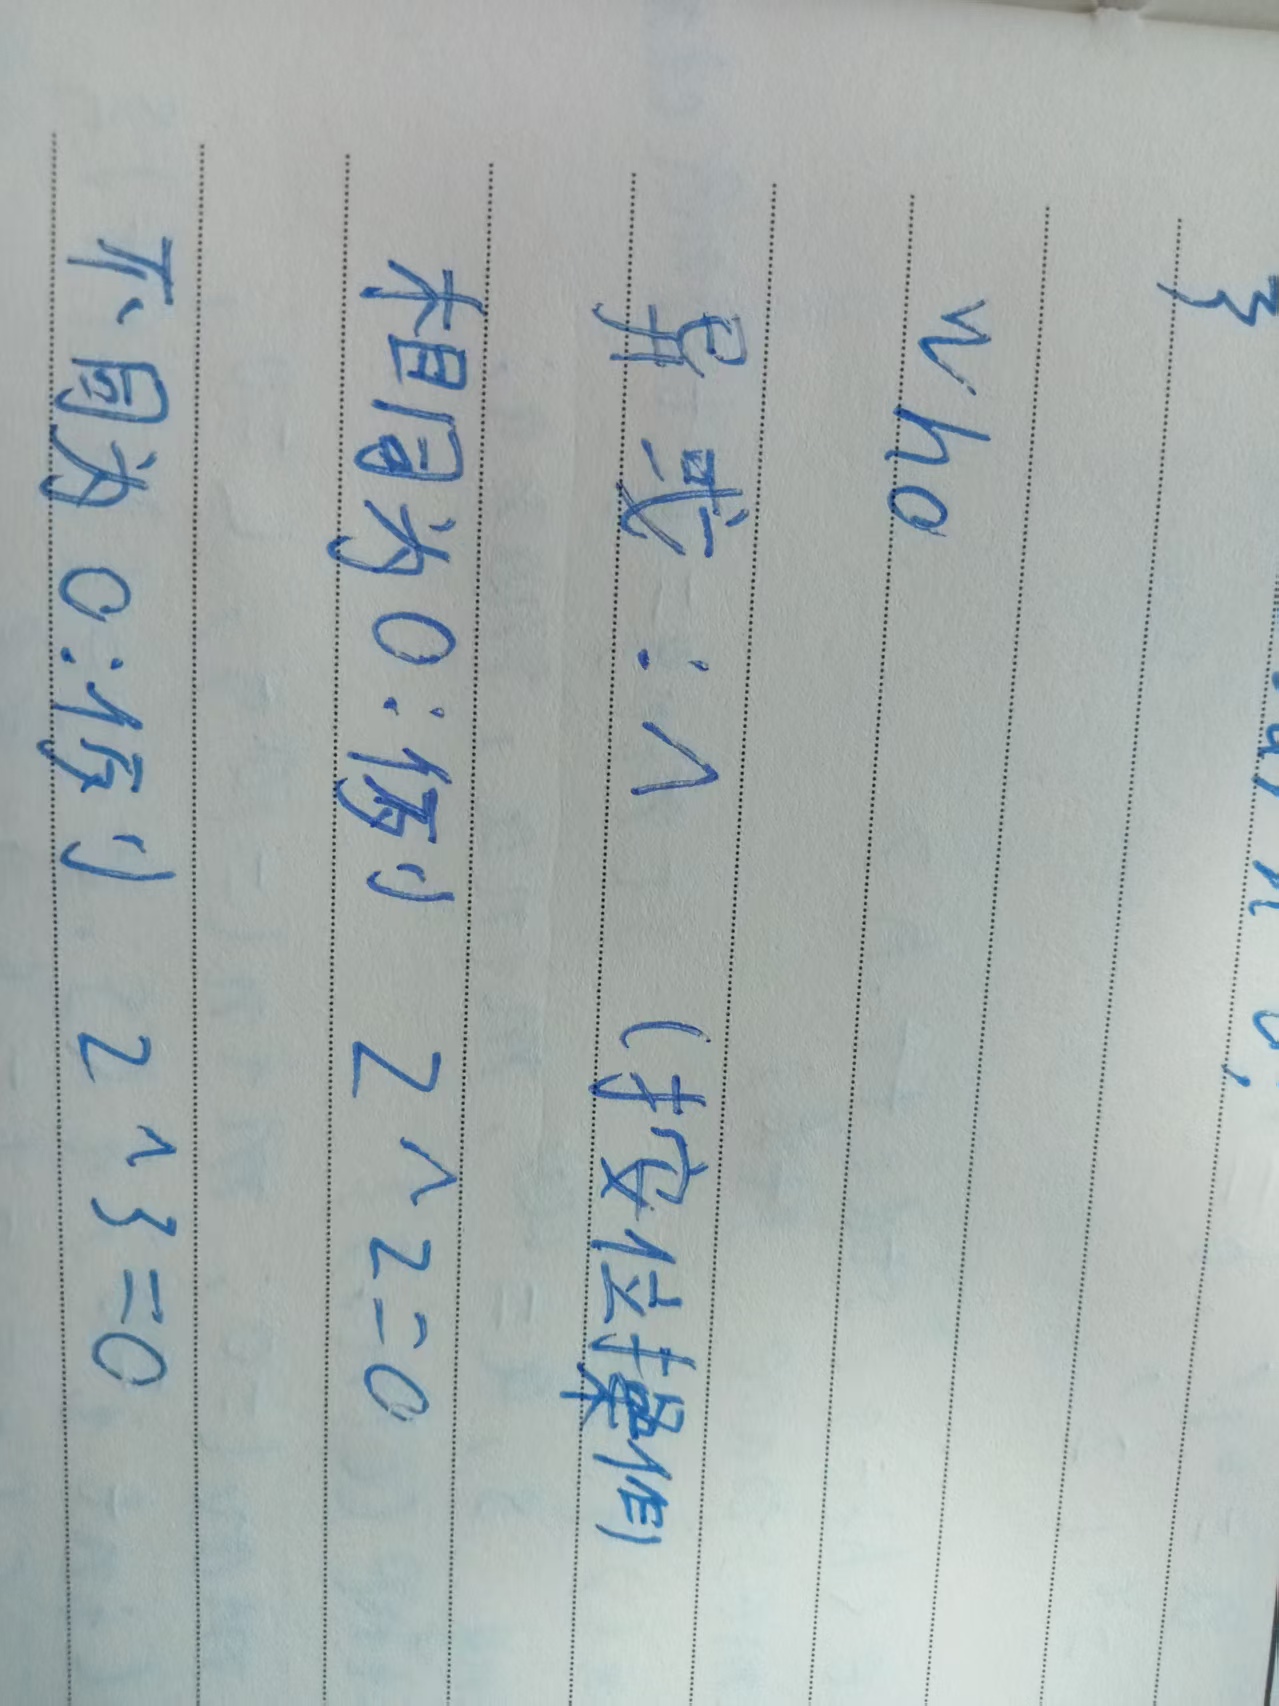 }
who
异或：^ （按位操作）
相同为0：例 2^2=0
不同为0：例 2^3=0